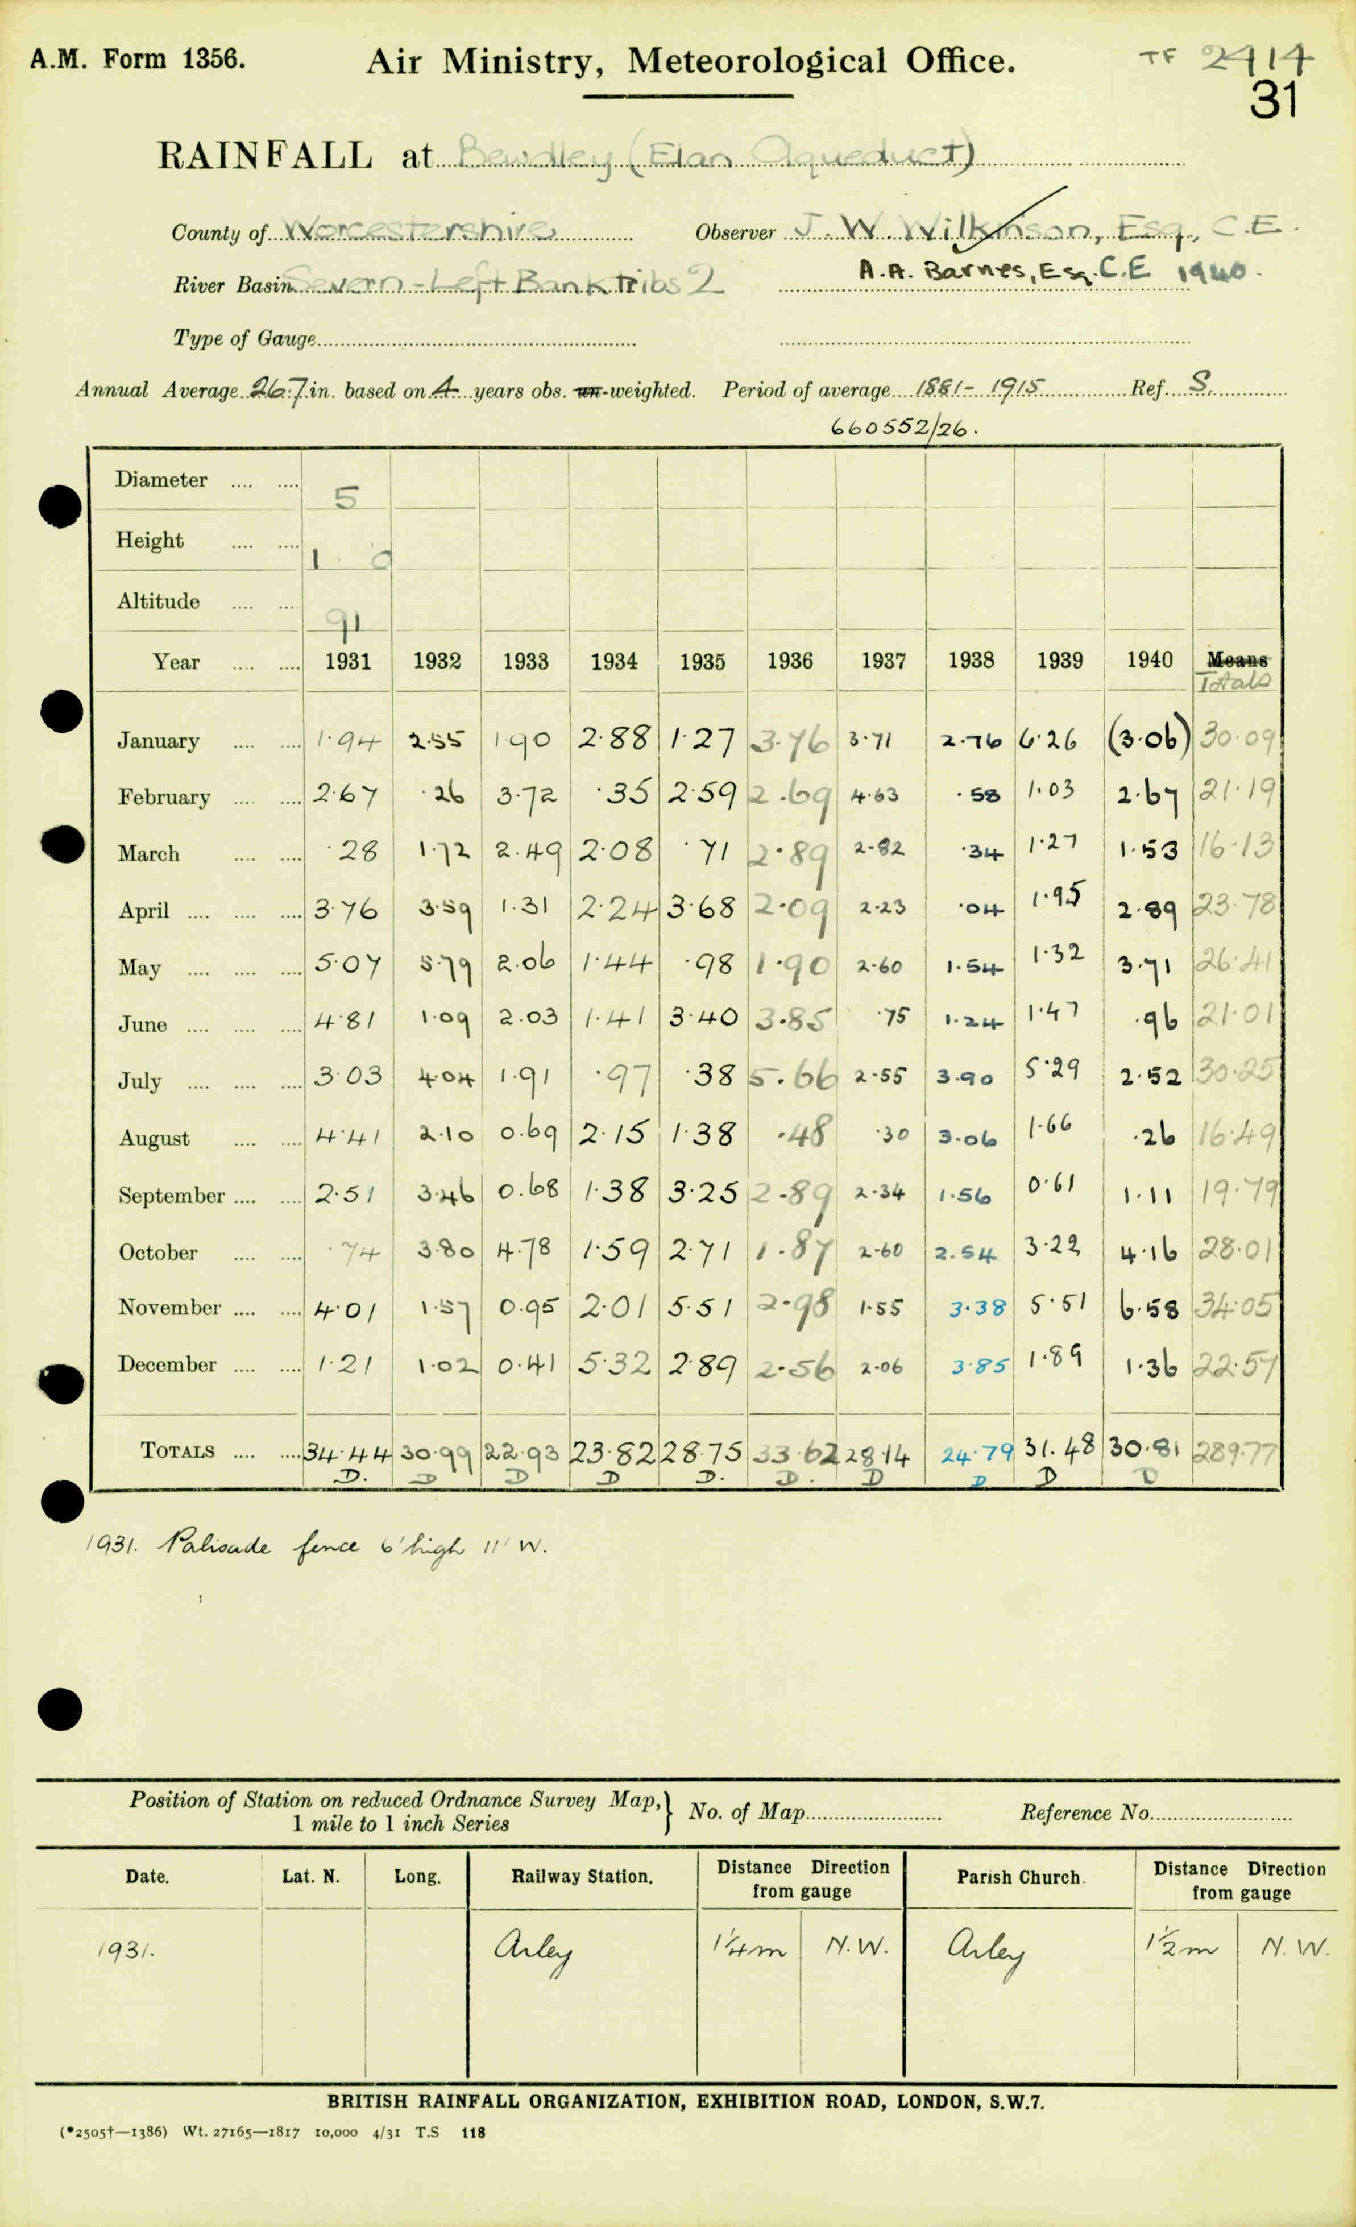 A.M. Form 1356. Air Ministry, Meteorological Office. TF 2414
31
RAINFALL at Bewdley (Elan Aqueduct)
County of Worcestershire Observer J. W. Wilkinson, Esq., C.E.
River Basin Severn - Left Bank Tribs 2 A.A. Barnes, Esq. C.E 1940.
Type of Gauge
Annual Average 26.7 in. based on 4 years obs. un-weighted. Period of average 1881- 1915 Ref. S.
660552/26.
Diameter 5
Height 1 0
Altitude 91
Year 1931 1932 1933 1934 1935 1936 1937 1938 1939 1940 Means
Totals
January 1.94 2.55 1.90 2.88 1.27 3.76 3.71 2.76 6.26 (3.06) 30.09
February 2.67 .26 3.72 .35 2.59 2.69 4.63 .58 1.03 2.67 21.19
March .28 1.72 2.49 2.08 .71 2.89 2.82 .34 1.27 1.53 16.13
April 3.76 3.59 1.31 2.24 3.68 2.09 2.23 .04 1.95 2.89 23.78
May 5.07 5.79 2.06 1.44 .98 1.90 2.60 1.54 1.32 3.71 26.41
June 4.81 1.09 2.03 1.41 3.40 3.85 .75 1.24 1.47 .96 21.01
July 3.03 4.04 1.91 .97 .38 5.66 2.55 3.90 5.29 2.52 30.25
August 4.41 2.10 0.69 2.15 1.38 .48 .30 3.06 1.66 .26 16.49
September 2.51 3.46 0.68 1.38 3.25 2.89 2.34 1.56 0.61 1.11 19.79
October .74 3.80 4.78 1.59 2.71 1.87 2.60 2.54 3.22 4.16 28.01
November 4.01 1.57 0.95 2.01 5.51 2.98 1.55 3.38 5.51 6.58 34.05
December 1.21 1.02 0.41 5.32 2.89 2.56 2.06 3.85 1.89 1.36 22.57
TOTALS 34.44 30.99 22.93 23.82 28.75 33.62 28.14 24.79 31.48 30.81 289.77
D. D D D D. D. D D D D
1931. Palisade fence 6' high 11' W.
Position of Station on reduced Ordnance Survey Map, } No. of Map Reference No.
1 mile to 1 inch Series
Date. Lat. N. Long. Railway Station. Distance Direction from gauge Parish Church. Distance Direction from gauge
1931. Arley 1/4 m N.W. Arley 1/2 m N.W.
BRITISH RAINFALL ORGANIZATION, EXHIBITION ROAD, LONDON, S.W.7.
(*2505†—1386) Wt. 27165—1817 10,000 4/31 T.S 118